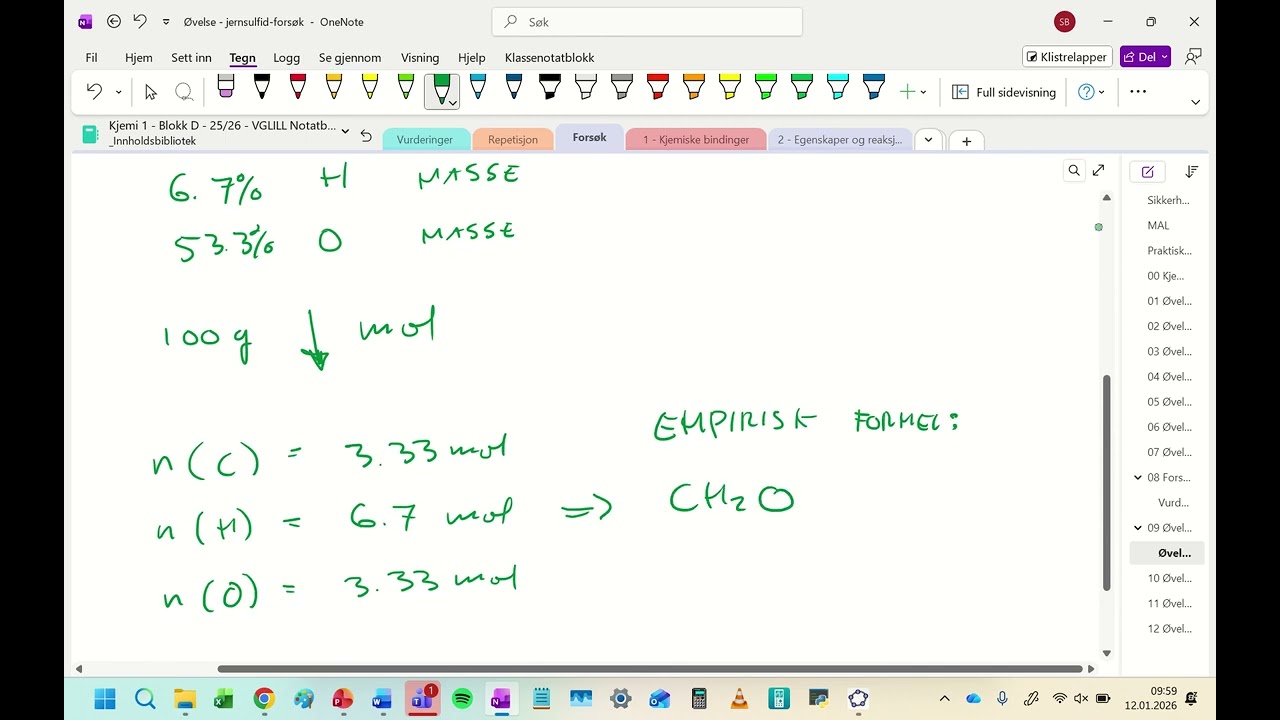 Øvelse - jernsulfid-forsøk - OneNote
Søk
SB
Fil Hjem Sett inn Tegn Logg Se gjennom Visning Hjelp Klassenotatblokk
Klistrelapper
Del
Full sidevisning
Kjemi 1 - Blokk D - 25/26 - VGLILL Notatb...
_Innholdsbibliotek
Vurderinger
Repetisjon
Forsøk
1 - Kjemiske bindinger
2 - Egenskaper og reaksj...
6.7% H MASSE
53.3% O MASSE
100 g ↓ mol
EMPIRISK FORMEL:
n(C) = 3.33 mol
n(H) = 6.7 mol => CH2O
n(O) = 3.33 mol
Sikkerh...
MAL
Praktisk...
00 Kje...
01 Øvel...
02 Øvel...
03 Øvel...
04 Øvel...
05 Øvel...
06 Øvel...
07 Øvel...
08 Fors...
Vurd...
09 Øvel...
Øvel...
10 Øvel...
11 Øvel...
12 Øvel...
1
09:59
12.01.2026